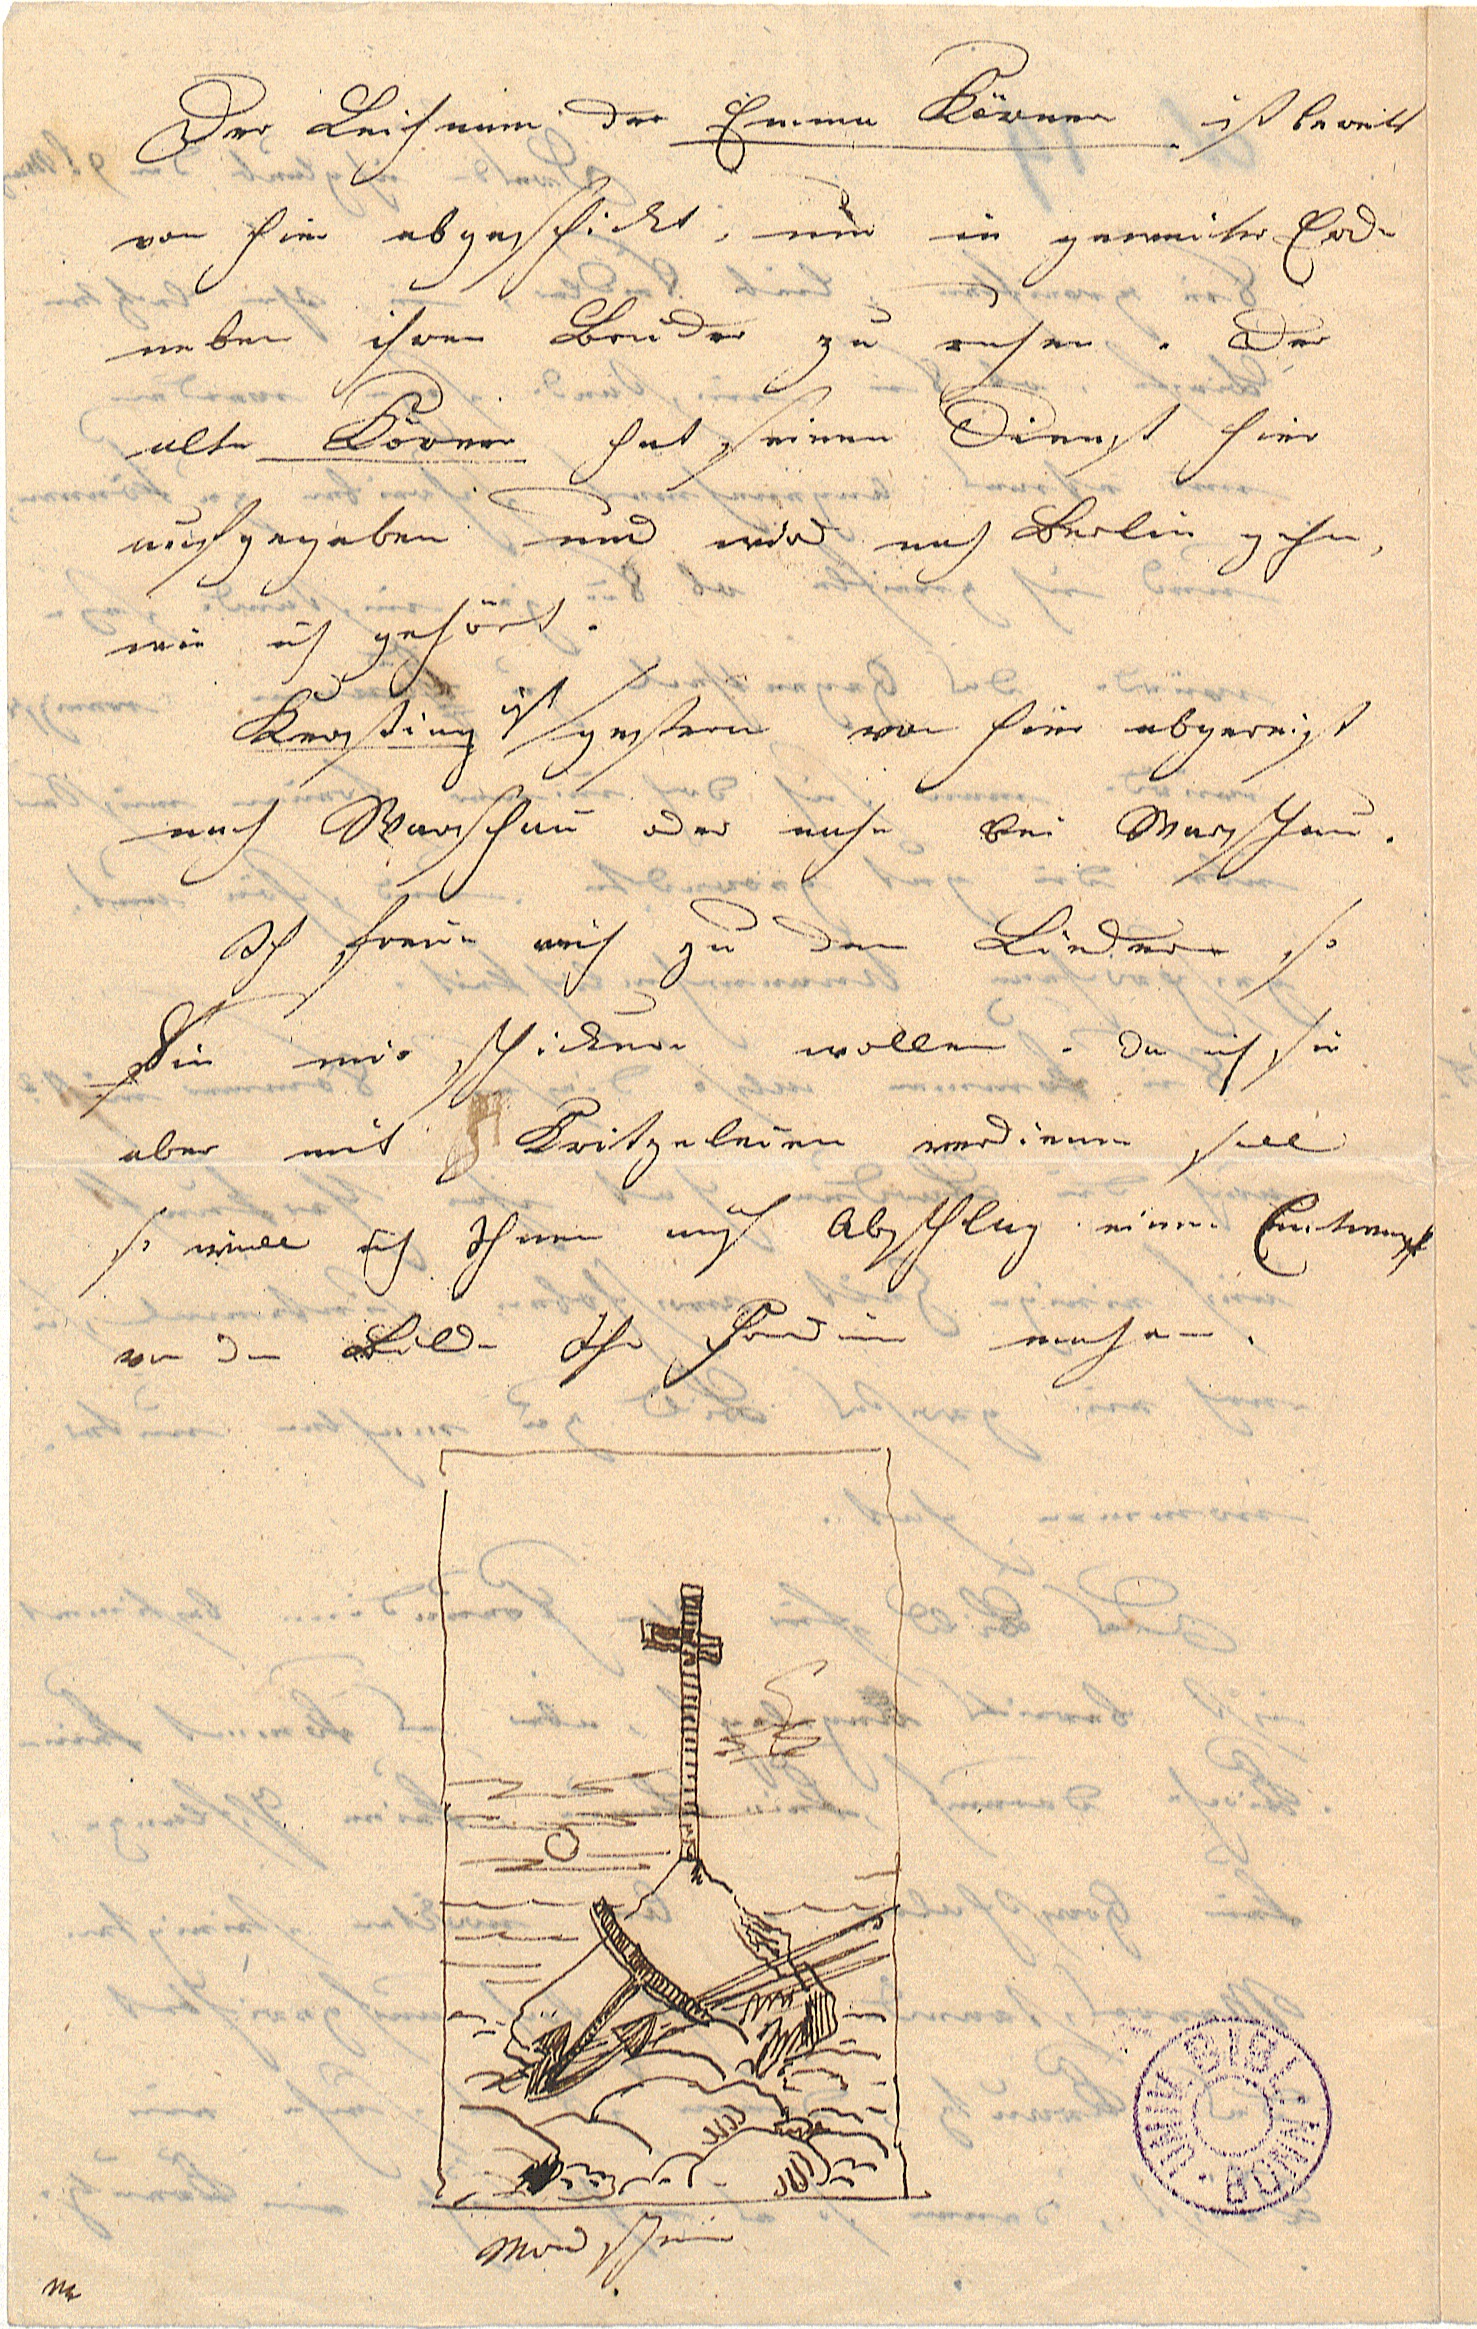 Der Leichnam der Emma Körner ist bereits
von hier abgeschickt, um in geweiter Erde
neben ihren Bruder zu ruhen. Der
alte Körner hat seinen Dienst hier
aufgegeben und wird nach Berlin gehn,
wie ich gehört.
Kersting ist gestern von hier abgereist
nach Warschau oder nahe bei Warschau.
Ich freue mich zu den Liedern so
Sie mir schicken wollen. Da ich sie
aber mit Kritzeleien verdienen soll
so will ich Ihnen auf Abschlag einen Entwurf
von den Bilde Ihr Freundin machen.
Mondschein
UNIV. BIBL.
BONN